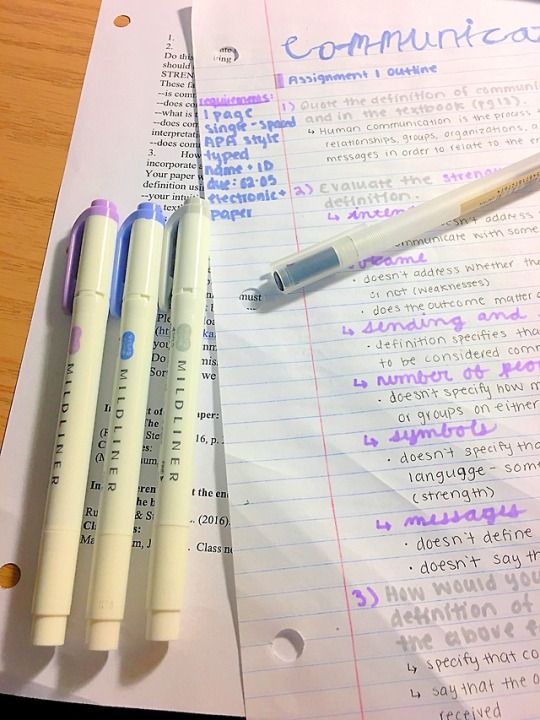 communica
Assignment 1 Outline
requirements:
1 page
single-spaced
APA style
typed
name + ID
due: 02.05
electronic+
paper
1) Quote the definition of communi
and in the textbook (pg 13).
↳ Human communication is the process
relationships, groups, organizations, a
messages in order to relate to the en
2) Evaluate the streng
definition.
↳ inten
doesn't address
communicate with some
come
doesn't address whether th
or not (weaknesses)
· does the outcome matter
↳ sending and
· definition specifies tha
to be considered comm
↳ number of peop
· doesn't specify how m
or groups on either
↳ symbols
· doesn't specify tha
language - som
(strength)
↳ messages
· doesn't define
· doesn't say th
3) How would you
definition of
the above f
↳ specify that co
↳ say that the o
received
1.
2.
Do this
should
STREN
These fa
--is com
--does co
--what is
--does com
interpretati
--does com
3. How
incorporate
Your paper
definition usin
--your intui
tex
must
Ple
(ht
you
Do
Sor we
In of aper:
The
(R Ste 16, p.
C es:
(M um,
In eren t the en
the b
Ru & S (2016)
Cla s:
Ma m, J . Class no
MILDLINER
MILDLINER
MILDLINER